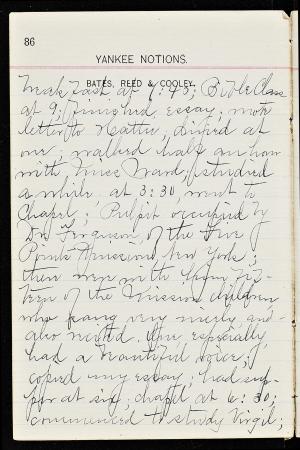 86
YANKEE NOTIONS.
BATES, REED & COOLEY.
Breakfast at 7:45; Bible Class
at 9; finished essay; wrote
letter to Hattie; dined at
one; walked half an hour
with Miss Ward; studied
a while. at 3:30, went to
Chapel; Pulpit occupied by
Dr. Ferguson, of the Five
Points Mission, New York;
there were with him fif-
teen of the Mission children
who sang very nicely and
also recited. One, especially,
had a beautiful voice;
copied my essay; had sup-
per at six; chapel at 6:30;
commenced to study Virgil;